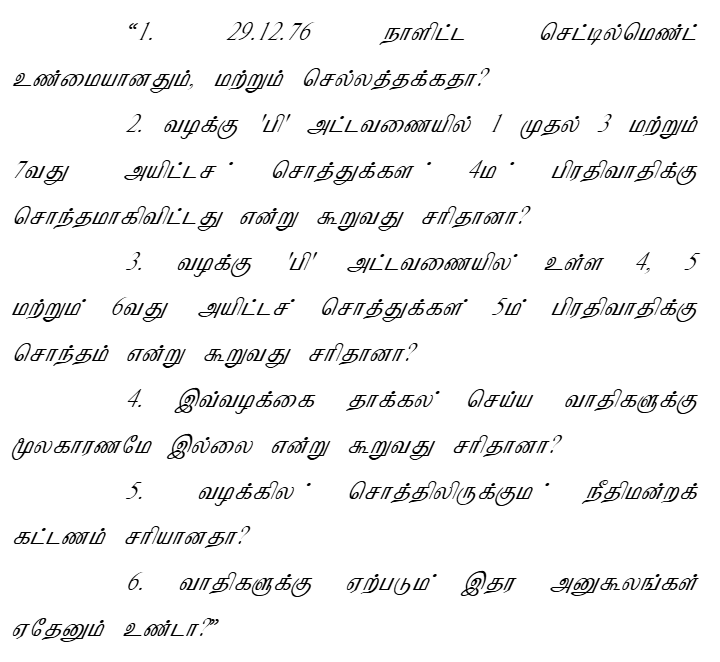 “1. 29.12.76 நாளிட்ட செட்டில்மெண்ட்
உண்மையானதும், மற்றும் செல்லத்தக்கதா?
2. வழக்கு 'பி' அட்டவணையில் 1 முதல் 3 மற்றும்
7வது அயிட்டச் சொத்துக்கள் 4ம் பிரதிவாதிக்கு
சொந்தமாகிவிட்டது என்று கூறுவது சரிதானா?
3. வழக்கு 'பி' அட்டவணையில் உள்ள 4, 5
மற்றும் 6வது அயிட்டச் சொத்துக்கள் 5ம் பிரதிவாதிக்கு
சொந்தம் என்று கூறுவது சரிதானா?
4. இவ்வழக்கை தாக்கல் செய்ய வாதிகளுக்கு
மூலகாரணமே இல்லை என்று கூறுவது சரிதானா?
5. வழக்கில் சொத்திலிருக்கும் நீதிமன்றக்
கட்டணம் சரியானதா?
6. வாதிகளுக்கு ஏற்படும் இதர அனுகூலங்கள்
ஏதேனும் உண்டா?”